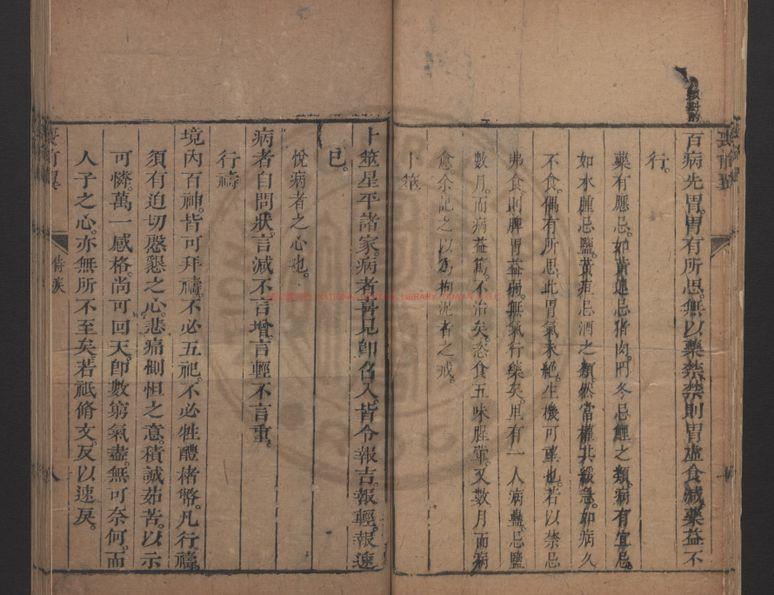 百病先胃胃有所思無以藥禁禁則胃虛食減藥益不
行
藥有腥忌如黃連忌猪肉門冬忌鯉之類病有宜忌
如水腫忌鹽黃疸忌酒之類然當權其緩急如病久
不食偶有所思此胃氣未絕生機可乘也若以禁忌
弗食則脾胃益損無氣行藥矣且有一人病蠱忌鹽
數月而病益篤不治矣恣食五味腥葷又數月而病
愈余記之以為拘泥者之戒
卜筮
卜筮星平諸家病者喜見即召入皆令報吉報輕報速
已
悅病者之心也
病者自問狀言減不言增言輕不言重
行禱
境內百神皆可拜禱不必五祀不必牲醴楮幣凡行禱
須有迫切懇懇之心悲痛惻怛之意積誠茹苦以示
可憐萬一感格尚可回天即數窮氣盡無可奈何而
人子之心亦無所不至矣若祇脩文反以速戾
侍疾
八